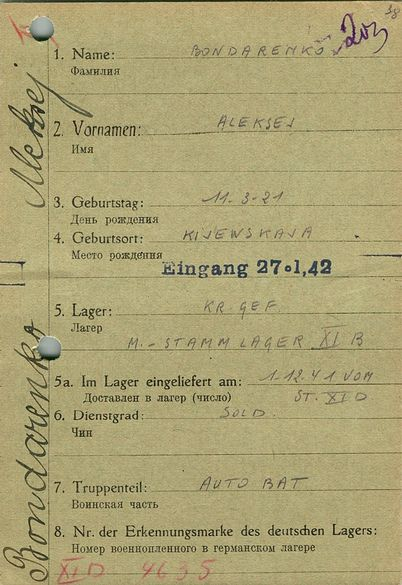 38
203
1. Name: BONDARENKO
Фамилия
2. Vornamen: ALEKSEJ
Имя
3. Geburtstag: 11-3-21
День рождения
4. Geburtsort: KIJEWSKAJA
Место рождения
Eingang 27.1,42
5. Lager: KR. GEF
Лагер
M.-STAMMLAGER XI B
5a. Im Lager eingeliefert am: 1-12.41 VOM
Доставлен в лагер (число) ST. XI D
6. Dienstgrad: SOLD.
Чин
7. Truppenteil: AUTO BAT
Воинская часть
8. Nr. der Erkennungsmarke des deutschen Lagers:
Номер военнопленного в германском лагере
XI D 4635
Bondarenko Aleksej